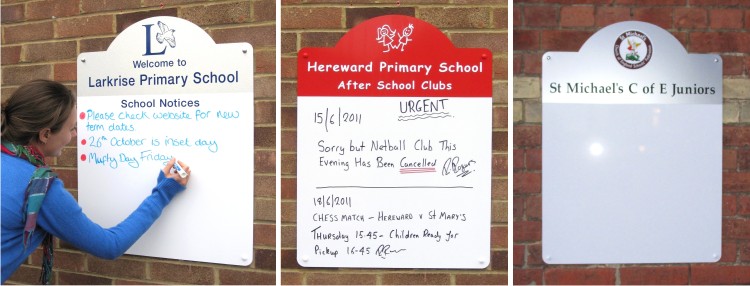 L
Welcome to
Larkrise Primary School
School Notices
Please check website for new
term dates
26th October is inset day
Mufty Day Friday
Hereward Primary School
After School Clubs
URGENT
15/6/2011
Sorry but Netball Club This
Evening Has Been Cancelled
18/6/2011
CHESS MATCH - HEREWARD v St MARY'S
THURSDAY 15-45 - Children Ready for
Pickup 16-45
St Michael's C of E Juniors